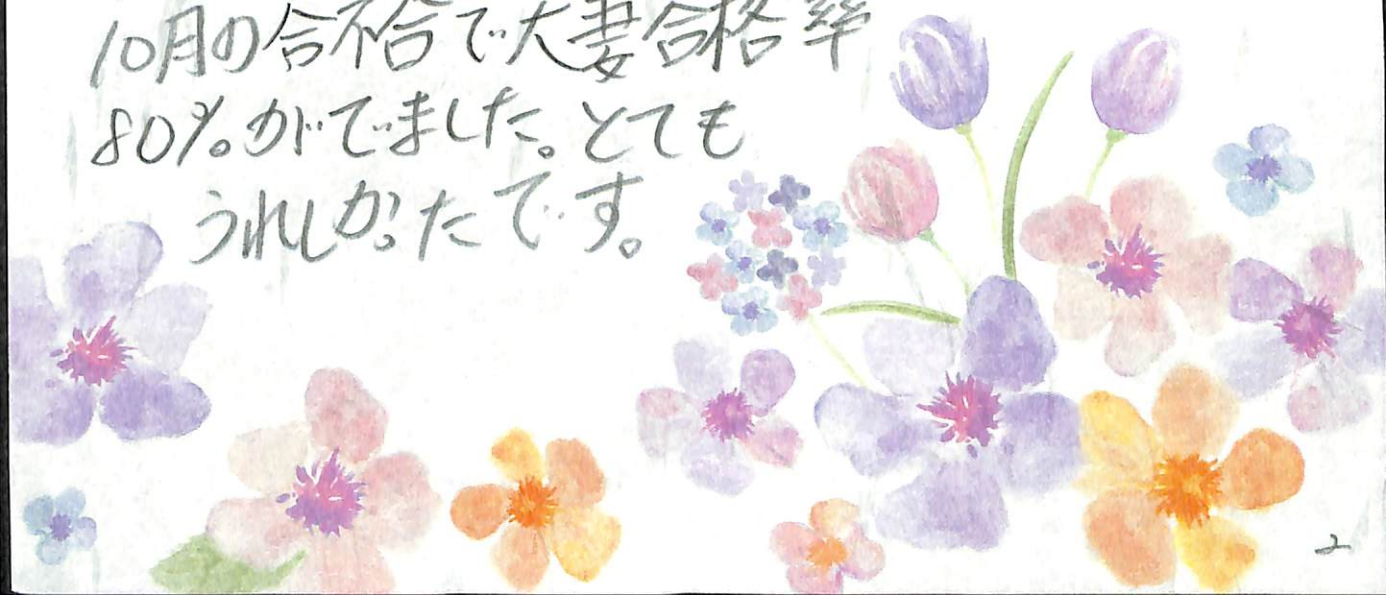 10月の合不合で大妻合格率
80%がでました。とても
うれしかったです。
2